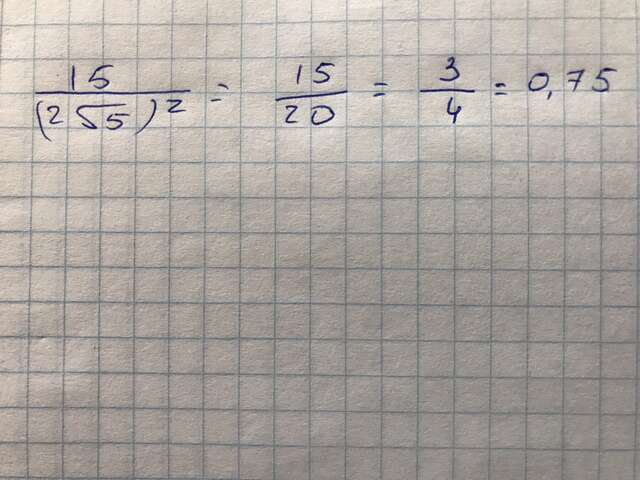 15/(2√5)² = 15/20 = 3/4 = 0,75